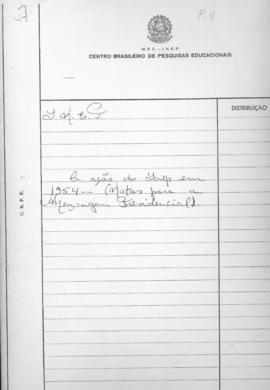 P.4
M.E.C. - I.N.E.P.
CENTRO BRASILEIRO DE PESQUISAS EDUCACIONAIS
DISTRIBUIÇÃO
A ação do Inep em
1954 - (Notas para a
Mensagem Presidencial).
C.B.P.E.